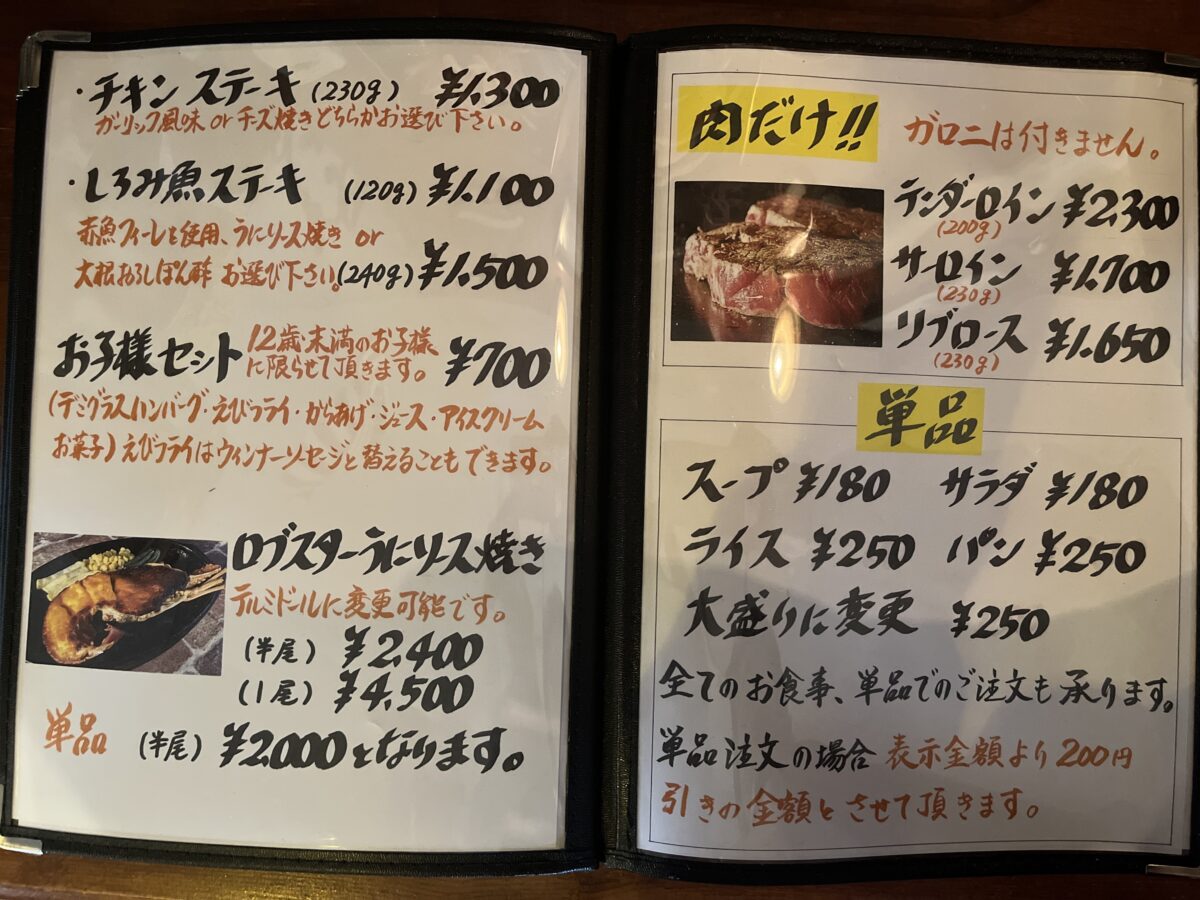 ・チキンステーキ(230g) ¥1.300
ガーリック風味 or チーズ焼きどちらかお選び下さい。
・しろみ魚ステーキ (120g) ¥1.100
赤魚フィーレを使用、うにソース焼き or
大根おろしぽん酢 お選び下さい。(240g) ¥1.500
お子様セット 12歳未満のお子様に限らせて頂きます。 ¥700
(デミグラスハンバーグ・えびフライ・からあげ・ジュース・アイスクリーム
お菓子)えびフライはウィンナーソセージと替えることもできます。
ロブスターうにソース焼き
テルミドールに変更可能です。
(半尾) ¥2.400
(1尾) ¥4.500
単品 (半尾) ¥2.000となります。
肉だけ!! ガロニは付きません。
テンダーロイン ¥2.300
(200g)
サーロイン ¥1.700
(230g)
リブロース ¥1.650
(230g)
単品
スープ ¥180 サラダ ¥180
ライス ¥250 パン ¥250
大盛りに変更 ¥250
全てのお食事、単品でのご注文も承ります。
単品注文の場合 表示金額より200円
引きの金額とさせて頂きます。